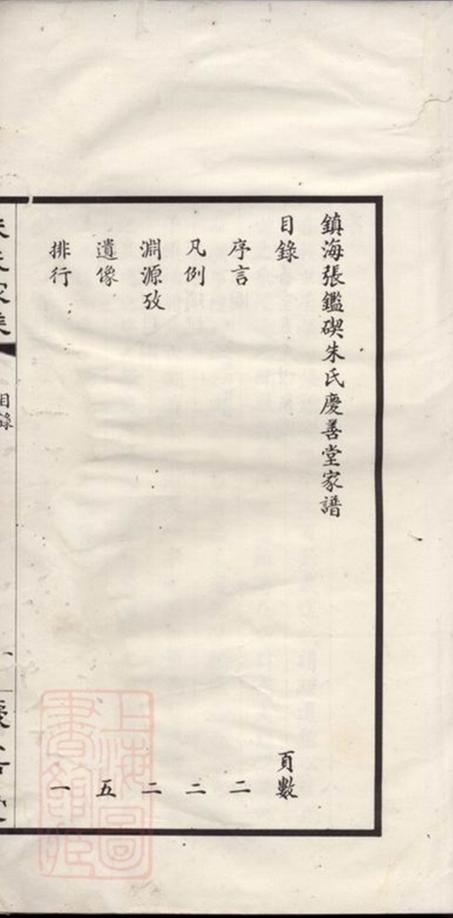 鎮海張鑑碶朱氏慶善堂家譜
目錄 頁數
序言 二
凡例 二
淵源攷 二
遺像 五
排行 一
目錄
上海圖書館藏